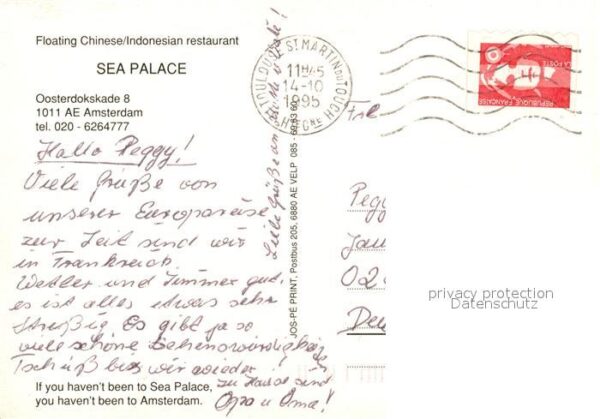 Floating Chinese/Indonesian restaurant
SEA PALACE
Oosterdokskade 8
1011 AE Amsterdam
tel. 020 - 6264777
Hallo Peggy!
Viele Grüße von
unserer Europareise
zur Zeit sind wir
in Frankreich
Wetter und Zimmer gut,
es ist alles etwas sehr
streßig Es gibt ja so
viele schöne Sehenswürdigkeiten
Tschüß bis wir wieder
zu Hause sind
Opa u Oma!
If you haven't been to Sea Palace,
you haven't been to Amsterdam.
Liebe Grüße an
JOS-PÉ PRINT, Postbus 205, 6880 AE VELP 085 -
ST MARTIN DU TOUCH
14-10
1995
HTE GNE
LA POSTE
REPUBLIQUE FRANÇAISE
Pegg
Jau
02
privacy protection
Datenschutz